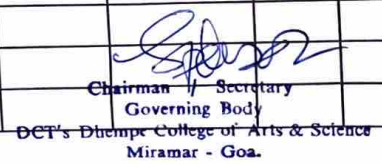 Chairman / Secretary
Governing Body
DCT's Dhempe College of Arts & Science
Miramar - Goa.